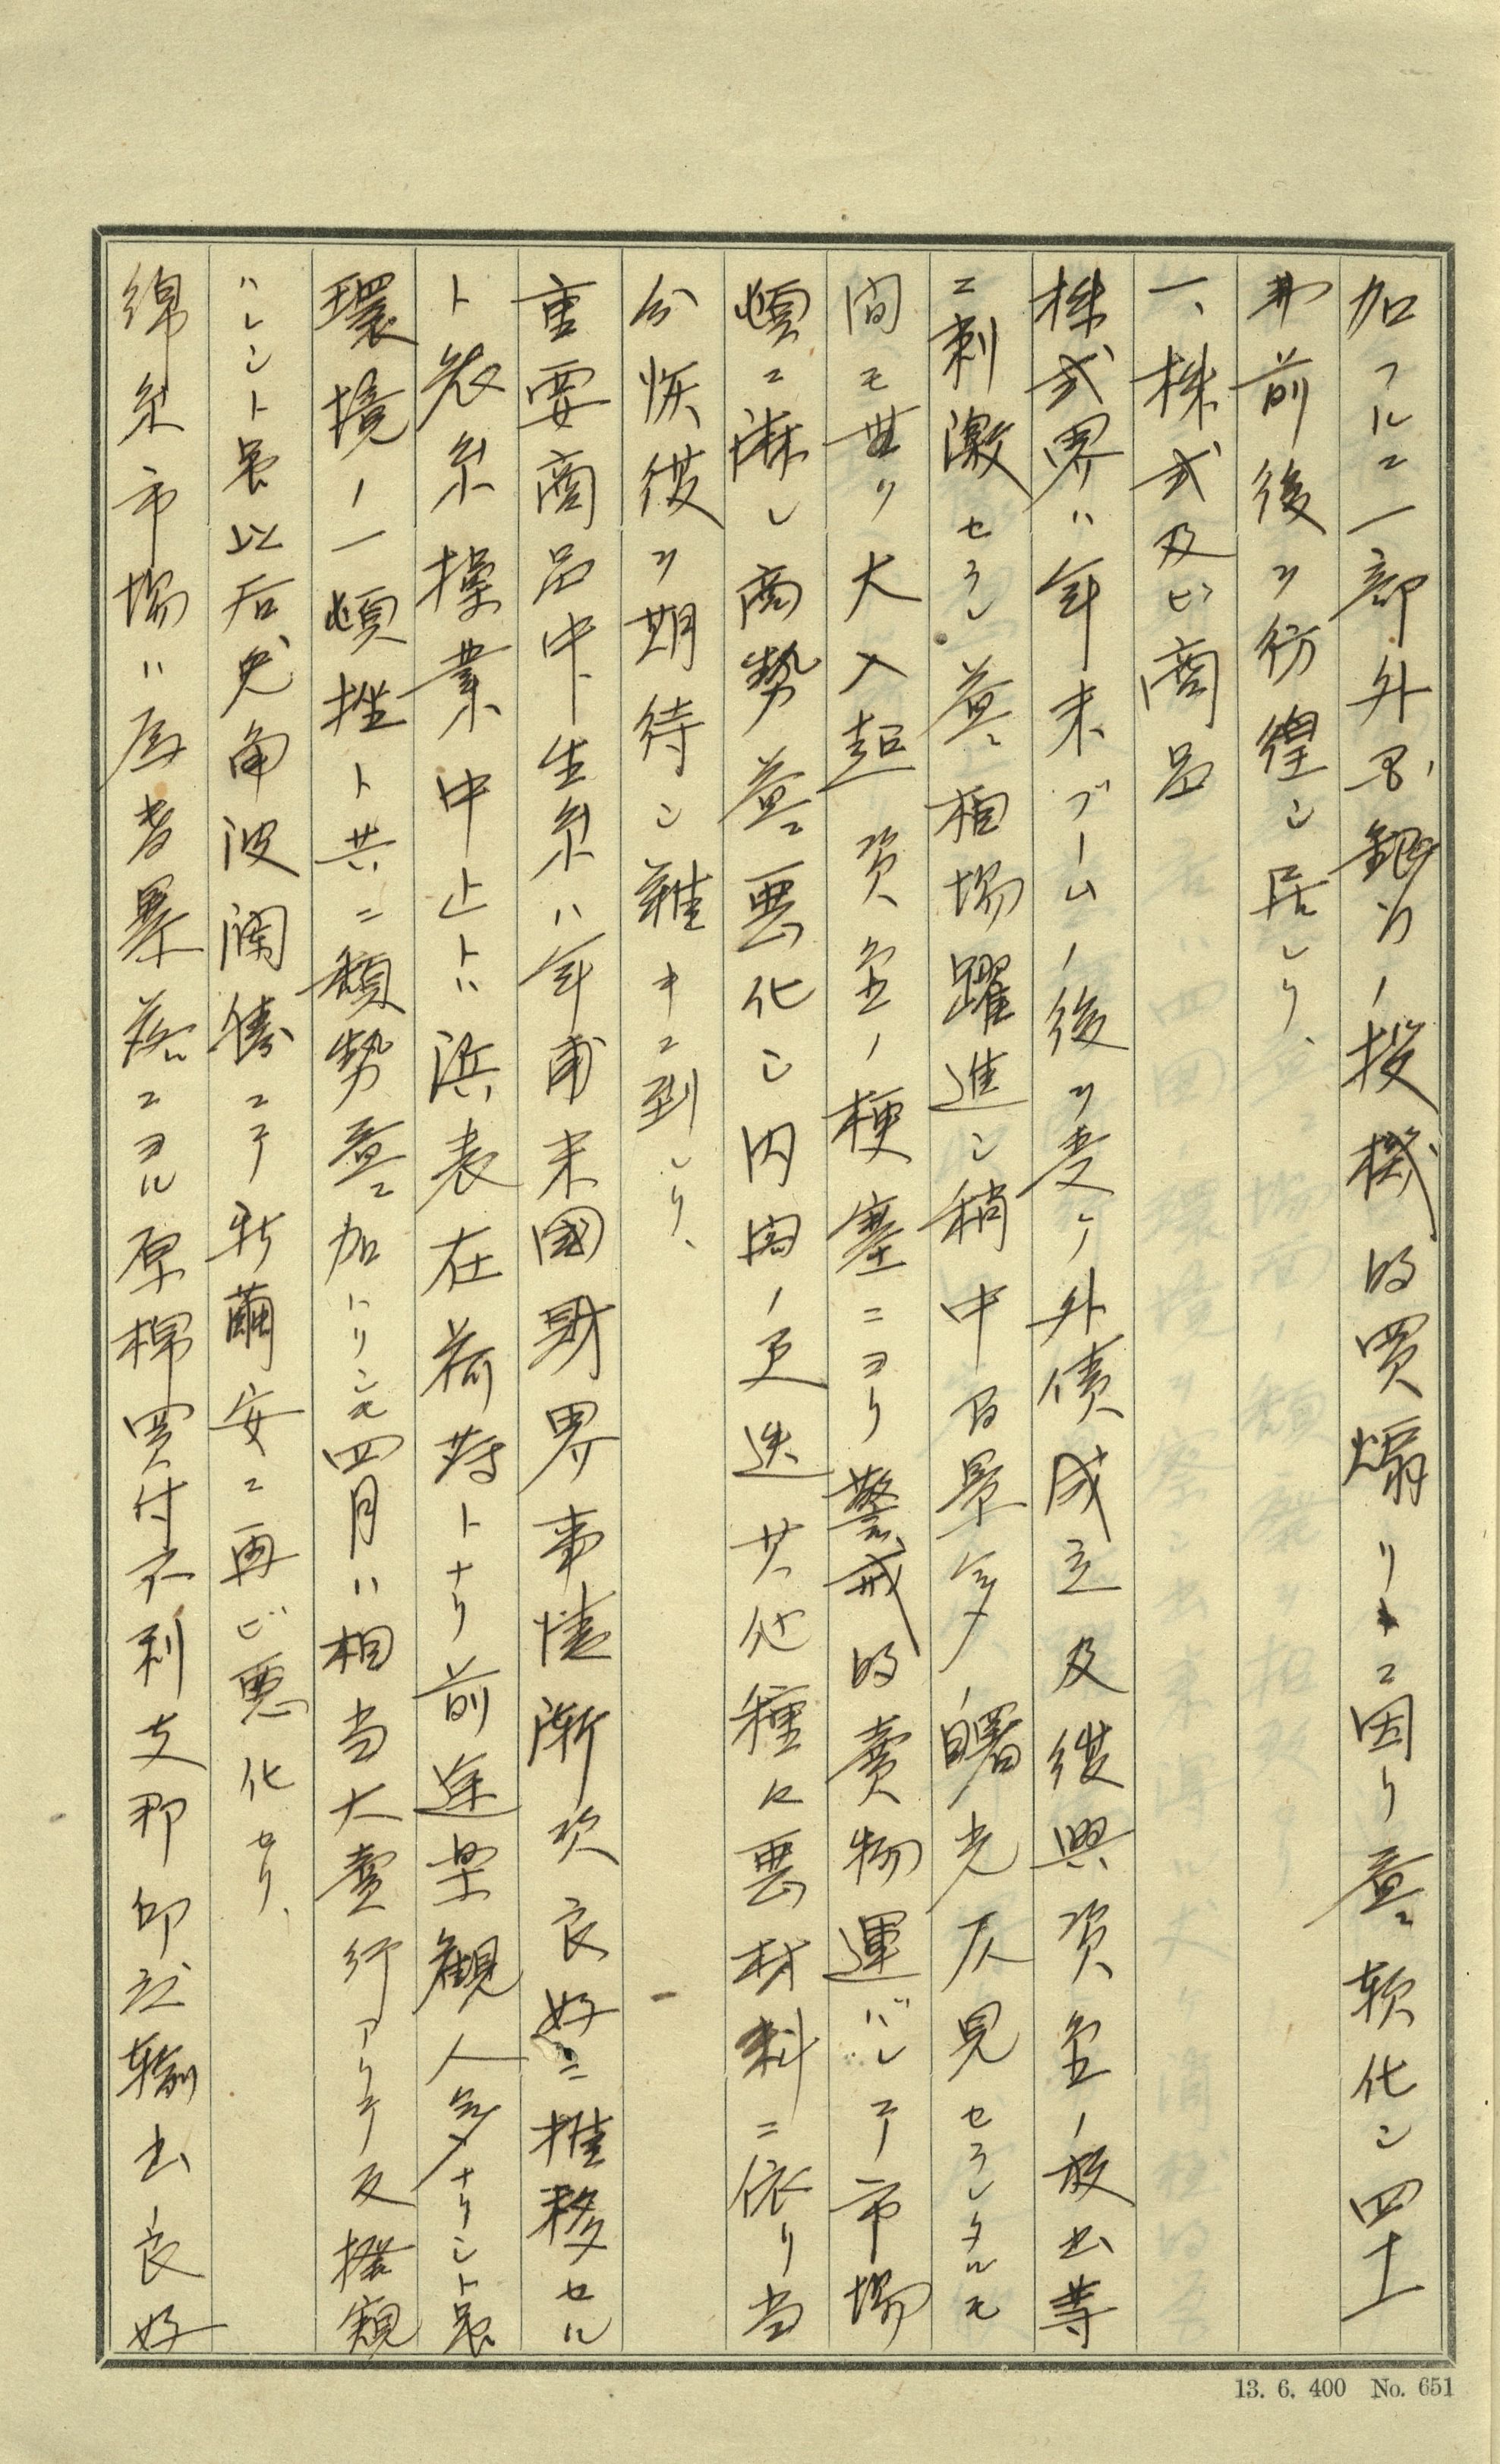 加フルニ一部外国銀行ノ投機的買煽リニ因リ益々軟化シ四十
弗前後ヲ彷徨シ居レリ、
一、株式及ビ商品
株式界ハ年末ブームノ後ヲ受ケ外債成立及復興資金ノ放出等
ニ刺激セラレ益々相場躍進シ稍中旬景気ノ曙光仄見セラレタルモ
間モ無ク大入超資金ノ梗塞ニヨリ警戒的賣物運バレテ市場
頓ニ淋シ商勢益々悪化シ内閣ノ更迭其他種々悪材料ニ依リ当
分恢復ヲ期待シ難キニ到レリ、
重要商品中生糸ハ年甫米國財界事情漸次良好ニ推移セル
ト製糸操業中止トハ浜表在荷薄トナリ前途楽観人気多ナリシト最
環境ノ一頓挫ト共ニ頽勢益々加ハリシモ四月ハ相当大賣行アリテ反撥観
ハレシト雖以后兎角波瀾勝ニテ新繭安ニ再ビ悪化セリ、
綿糸市場ハ為替暴落ニヨル原棉買付不利支那印度輸出良好
13. 6. 400 No. 651